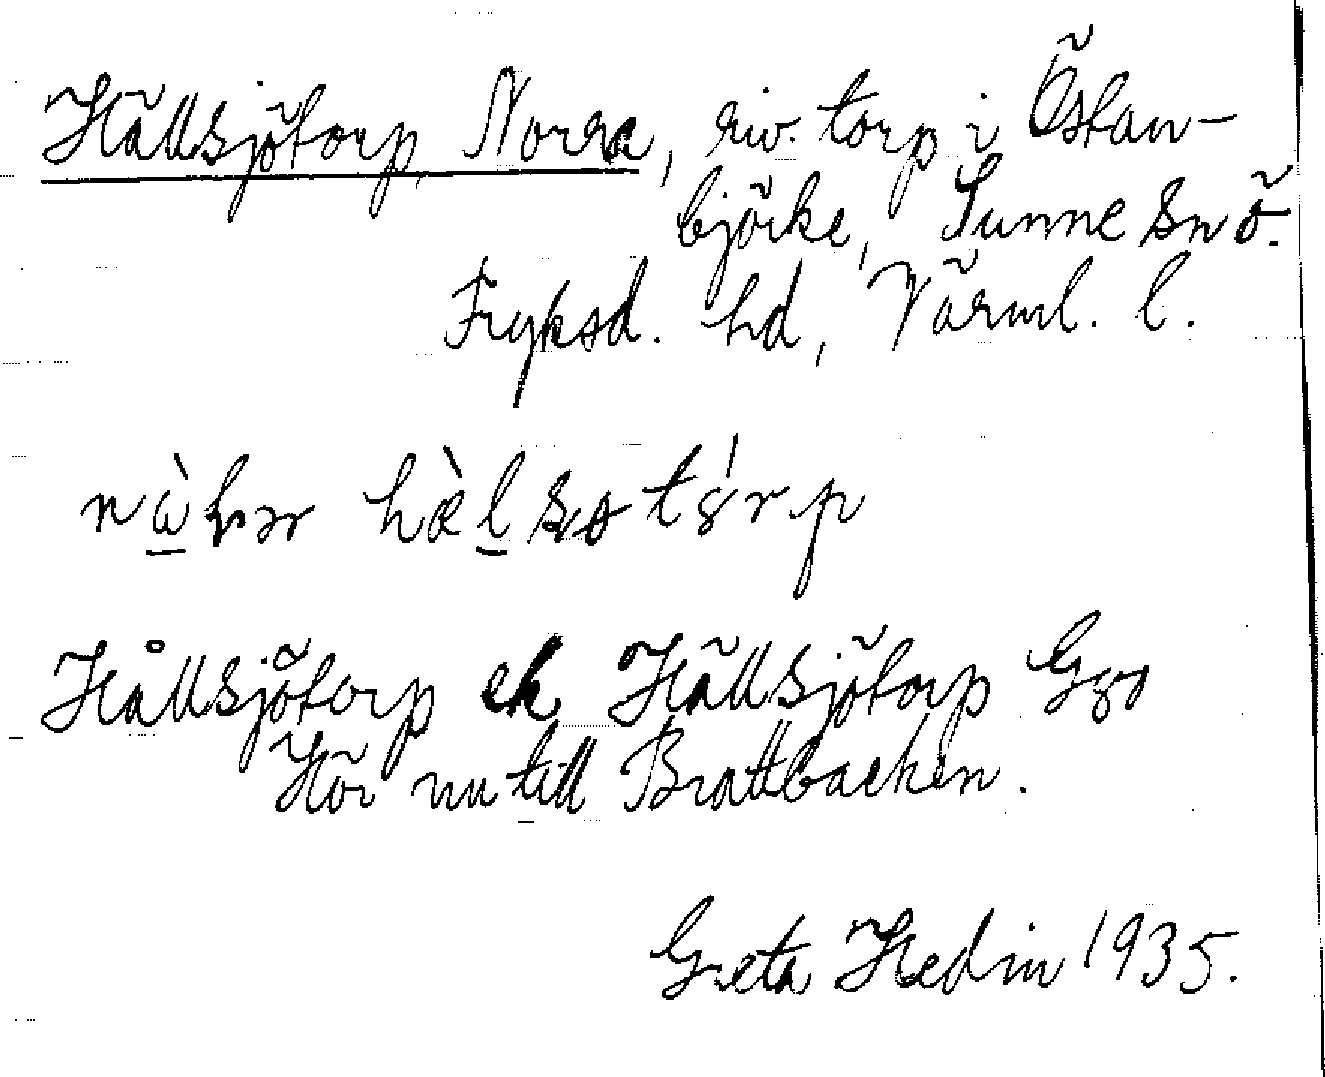 Hällsjötorp, Norra, riv. torp i Östan-
björke, Sunne sn ö.
Fryksd. hd, Värml. l.
Hållsjötorp ek Hällsjötorp Gzo
Hör nu till Brattbacken.
Greta Hedin 1935.